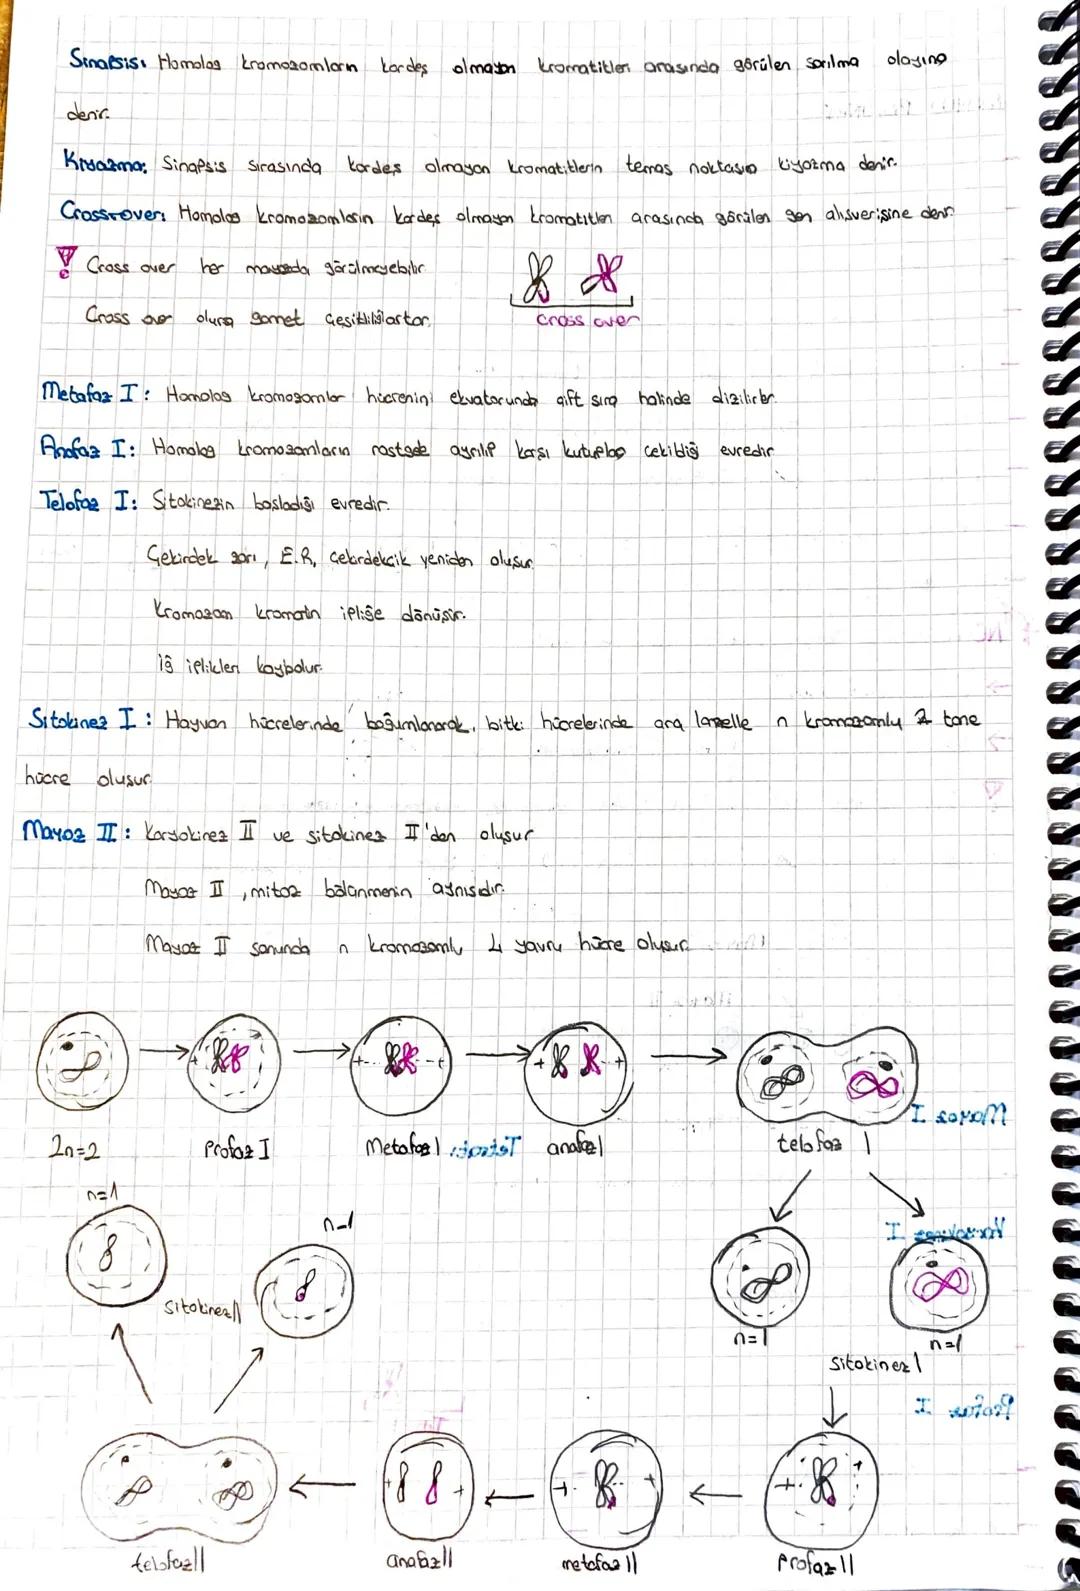 Sinapsis: Homolog kromozomların kardeş olmayan kromatitleri arasında görülen sarılma olayına
denir.
Kiyazma: Sinapsis sırasında kardeş olmayan kromatitlerin temas noktasına kiyazma denir.
Cross-over: Homolog kromozomların kardeş olmayan kromatitleri arasında görülen gen alışverişine denir
Cross over her mayozda görülmeyebilir
Cross over olursa gamet çeşitliliği artar.
Cross over
Metafaz I: Homolog kromozomlar hücrenin ekvatorunda çift sıra halinde dizilirler.
Anafaz I: Homolog kromozomların rastgele ayrılıp karşı kutuplara çekildiği evredir
Telofaz I: Sitokinezin başladığı evredir.
Çekirdek zarı, E.R, çekirdekçik yeniden oluşur.
Kromozom kromatin ipliğe dönüşür.
iğ iplikleri kaybolur.
Sitokinez I: Hayvan hücrelerinde boğumlanarak, bitki hücrelerinde ara lamelle n kromozomlu 2 tane
hücre oluşur.
Mayoz II: Karyokinez II ve sitokinez II'den oluşur
Mayoz II, mitoz bölünmenin aynısıdır.
Mayoz II sonunda n kromozomlu 4 yavru hücre oluşur.
2n=2
Profaz I
Metafaz I
anafaz I
telofaz I
n=1
n=1
Sitokinez II
n=1
n=1
Sitokinez I
telofaz II
anafaz II
metafaz II
Profaz II